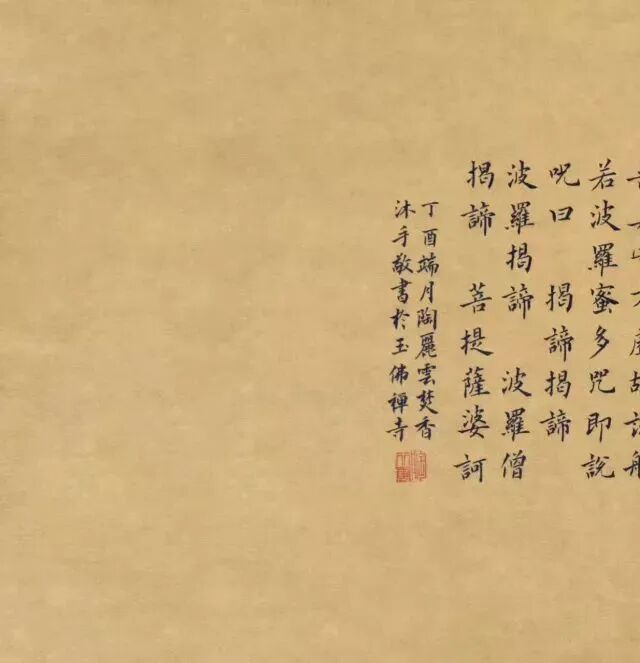 若波羅蜜多咒即說
呪曰 揭諦揭諦
波羅揭諦 波羅僧
揭諦 菩提薩婆訶
丁酉端月陶麗雲焚香
沐手敬書於玉佛禪寺